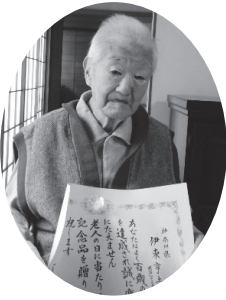 神奈川県
伊東
あなたは 百歳
を達成され誠に
にたえません
老人の日に当たり
記念品を贈り
祝します